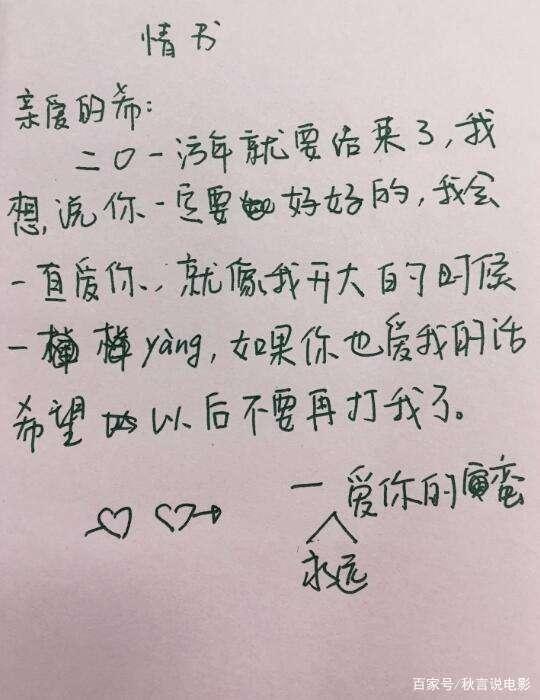 情书
亲爱的希：
二〇一污年就要结束了，我
想，说你一定要好好的，我会
一直爱你，就像我开大自的时候
一样yàng，如果你也爱我的话
希望以后不要再打我了。
一永远爱你的寅蛮
百家号/秋言说电影